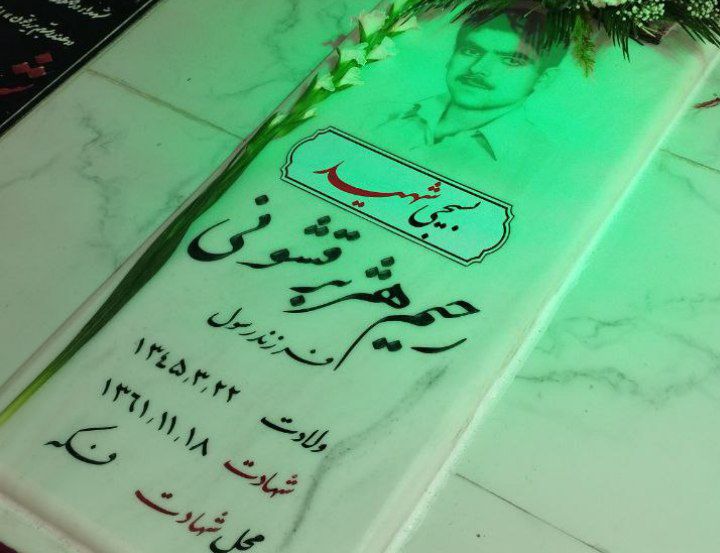 بسیجی شهید
رحیم هژبر قشونی
فرزند رسول
ولادت ۱۳۴۵٫۳٫۲۲
شهادت ۱۳۶۱٫۱۱٫۱۸
محل شهادت فکه